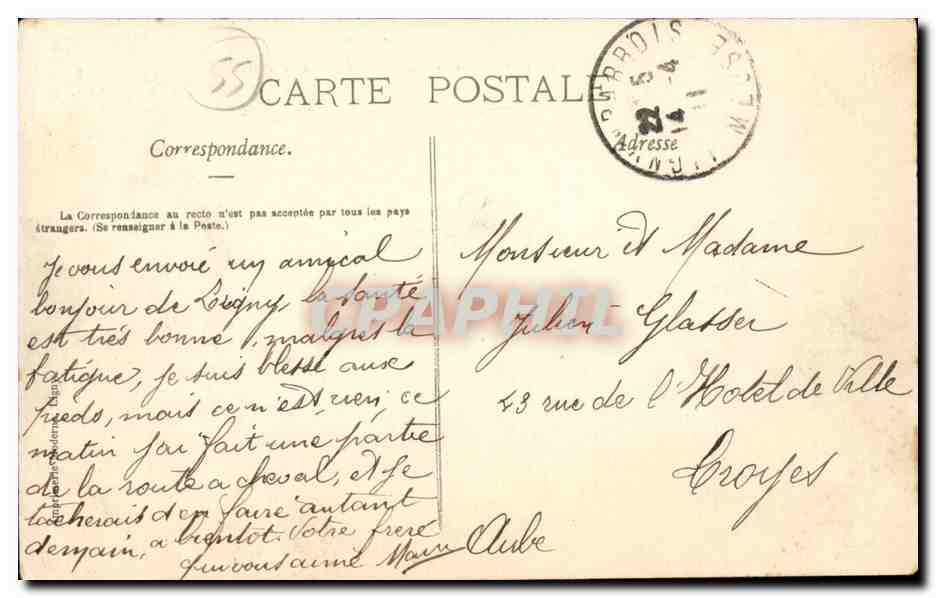 55
CARTE POSTALE
Correspondance.
La Correspondance au recto n'est pas acceptée par tous les pays
étrangers. (Se renseigner à la Poste.)
Adresse
22 5
14 - 4
11
Je vous envoie un amical
bonjour de Ligny la santé
est trés bonne, malgres la
fatigue, je suis blessé aux
pieds, mais ce n'est rien, ce
matin j'ai fait une partie
de la route a cheval, et je
tacherais d'en faire autant
demain, a bientot. Votre frere
qui vous aime
Monsieur et Madame
Julien Glasser
23 rue de l'Hotel de Ville
Troyes
Aube
Imprimerie Moderne, Ligny
CPAPHIL